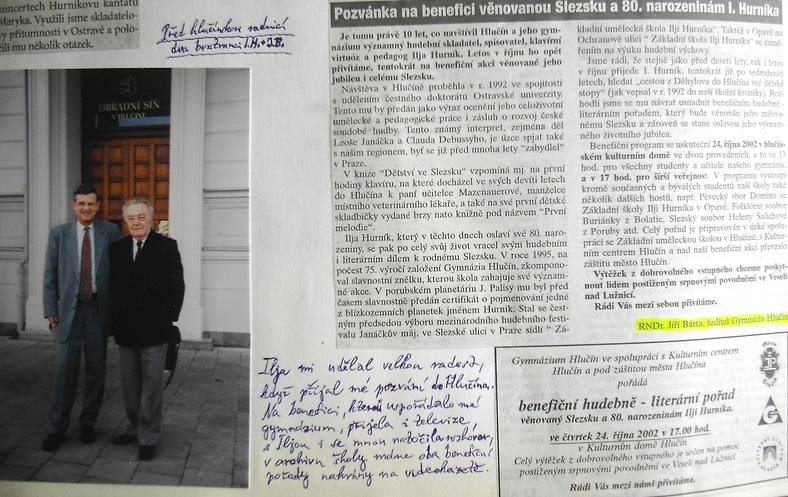 koncertech Hurníkovu kantátu
Maryka. Využili jsme skladatelo-
vy přítomnosti v Ostravě a polo-
žili mu několik otázek.
Před hlučínskou radnicí
dva bratranci I.H. + J.B.
OBŘADNÍ SÍŇ
V HLUČÍNĚ
Pozvánka na benefici věnovanou Slezsku a 80. narozeninám I. Hurníka
Je tomu právě 10 let, co navštívil Hlučín a jeho gym-
názium významný hudební skladatel, spisovatel, klavírní
virtuóz a pedagog Ilja Hurník. Letos v říjnu ho opět
přivítáme, tentokrát na benefiční akci věnované jeho
jubileu i celému Slezsku.
Návštěva v Hlučíně proběhla v r. 1992 ve spojitosti
s udělením čestného doktorátu Ostravské univerzity.
Tento mu by předán jako výraz ocenění jeho celoživotní
umělecké a pedagogické práce i zásluh o rozvoj české
soudobé hudby. Tento známý interpret, zejména děl
Leoše Janáčka a Clauda Debussyho, je úzce spjat také
s naším regionem, byť se již před mnoha lety "zabydlel"
v Praze.
V knize "Dětství ve Slezsku" vzpomíná mj. na první
hodiny klavíru, na které docházel ve svých devíti letech
do Hlučína k paní učitelce Mazenauerové, manželce
místního veterinárního lékaře, a také na své první dětské
skladbičky vydané brzy nato knižně pod názvem "První
melodie".
Ilja Hurník, který v těchto dnech oslaví své 80. naro-
zeniny, se pak po celý svůj život vracel svým hudebním
i literárním dílem k rodnému Slezsku. V roce 1995, na
počest 75. výročí založení Gymnázia Hlučín, zkompono-
val slavnostní znělku, kterou škola zahajuje své význam-
né akce. V porubském planetáriu J. Palisy mu byl před
časem slavnostně předán certifikát o pojmenování jedné
z blízkozemních planetek jménem Hurník. Stal se čest-
ným předsedou výboru mezinárodního hudebního festi-
valu Janáčkův máj, ve Slezské ulici v Praze sídlí " Zá-
kladní umělecká škola Ilji Hurníka". Taktéž v Opavě na
Ochranově ulici " Základní škola Ilji Hurníka" se zamě-
řením na výuku hudební výchovy.
Jsme rádi, že stejně jako před deseti lety, tak i letos
v říjnu přijede I. Hurník, tentokrát již po sedmdesáti
letech, hledat „cestou z Děhylova do Hlučína své dětské
stopy" (jak vepsal v r. 1992 do naší školní kroniky). Roz-
hodli jsme se mu návrat usnadnit benefičním hudebně -
literárním pořadem, který bude věnován jeho milova-
nému Slezsku a zároveň se stane oslavou jeho význam-
ného životního jubilea.
Benefiční program se uskuteční 24. října 2002 v hlučín-
ském kulturním domě ve dvou provedeních, a to ve 13
hod. pro všechny studenty a učitele našeho gymnázia,
a v 17 hod. pro širší veřejnost. V programu vystoupí
kromě současných a bývalých studentů naší školy také
několik dalších hostů, např. Pěvecký sbor Domino ze
Základní školy Ilji Hurníka v Opavě, Folklórní soubor
Buriánky z Bolatic, Slezský soubor Heleny Salichové
z Poruby atd. Celý pořad je připravován v úzké spolu-
práci se Základní uměleckou školou v Hlučíně, s Kultur-
ním centrem Hlučín a nad naší benefiční akcí převzalo
záštitu město Hlučín.
Výtěžek z dobrovolného vstupného chceme poskyt-
nout lidem postiženým srpnovými povodněmi ve Veselí
nad Lužnicí.
Rádi Vás mezi sebou přivítáme.
RNDr. Jiří Bárta, ředitel Gymnázia Hlučín
Ilja mi udělal velkou radost,
když přijal mé pozvání do Hlučína.
Na benefici, kterou uspořádalo mé
gymnázium, přijela i televize
s Iljou i se mnou natočila rozhovor,
v archivu školy máme oba benefiční
pořady nahrány na videokazetě.
Gymnázium Hlučín ve spolupráci s Kulturním centrem
Hlučín a pod záštitou města Hlučína
pořádá
benefiční hudebně - literární pořad
věnovaný Slezsku a 80. narozeninám Ilji Hurníka.
ve čtvrtek 24. října 2002 v 17.00 hod.
v Kulturním domě Hlučín
Celý výtěžek z dobrovolného vstupného je určen na pomoc
postiženým srpnovými povodněmi ve Veselí nad Lužnicí
Rádi Vás mezi námi přivítáme.